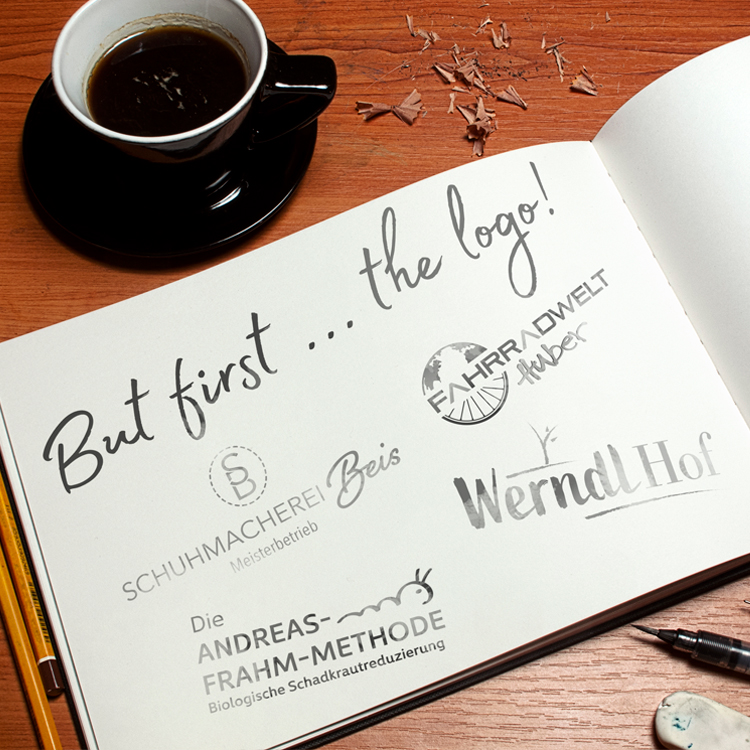 But first ... the logo!
FAHRRADWELT
Huber
SB
SCHUHMACHEREI Beis
Meisterbetrieb
Werndl Hof
Die
ANDREAS-
FRAHM-METHODE
Biologische Schadkrautreduzierung